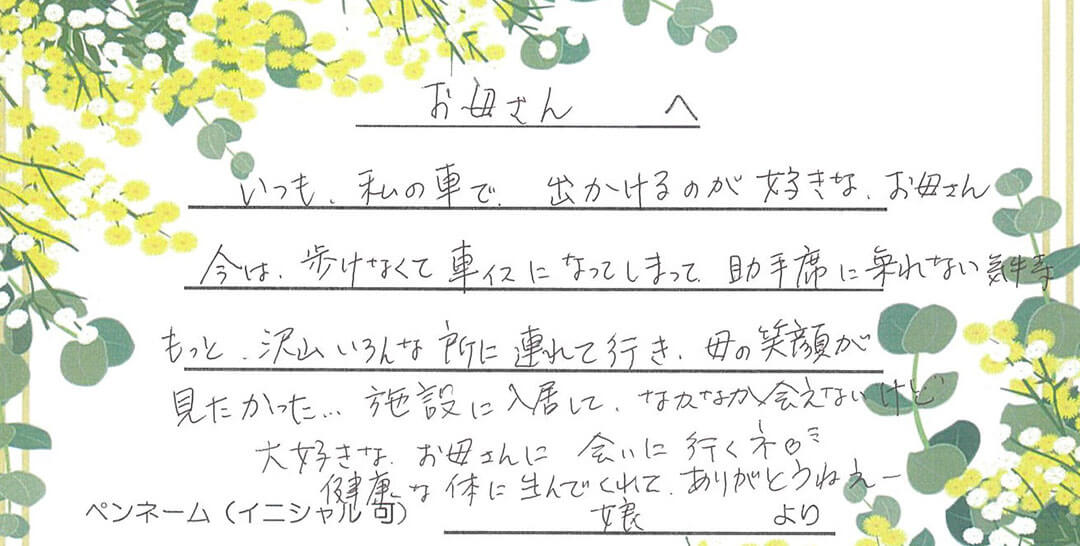 お母さん へ
いつも、私の車で、出かけるのが好きな、お母さん
今は、歩けなくて車イスになってしまって、助手席に乗れない気持
もっと、沢山いろんな所に連れて行き、母の笑顔が
見たかった… 施設に入居して、なかなか会えないけど
大好きな、お母さんに 会いに行くネ
健康な体に生んでくれて、ありがとうねえー
ペンネーム(イニシャル可) 娘 より